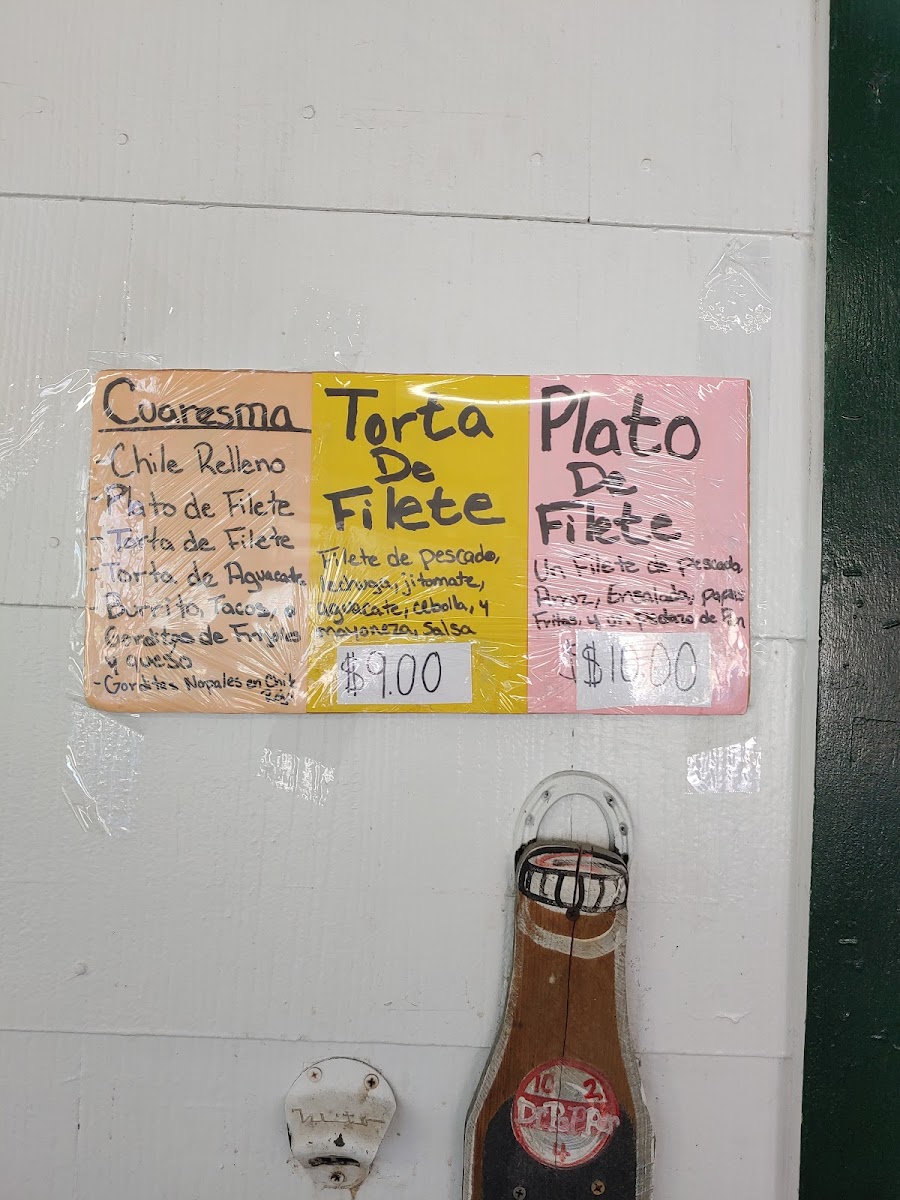 Cuaresma
- Chile Relleno
- Plato de Filete
- Torta de Filete
- Torta de Aguacate
- Burrito, Tacos, o
Gorditas de Frijoles
y queso
- Gorditas Nopales en Chile
Rojo
Torta
De
Filete
Filete de pescado,
lechuga, jitomate,
aguacate, cebolla, y
mayoneza, salsa
$9.00
Plato
De
Filete
Un Filete de pescado,
Arroz, Ensalada, papas
Fritas, y un pedazo de Pan
$10.00
10 2
Dr Pepper
4